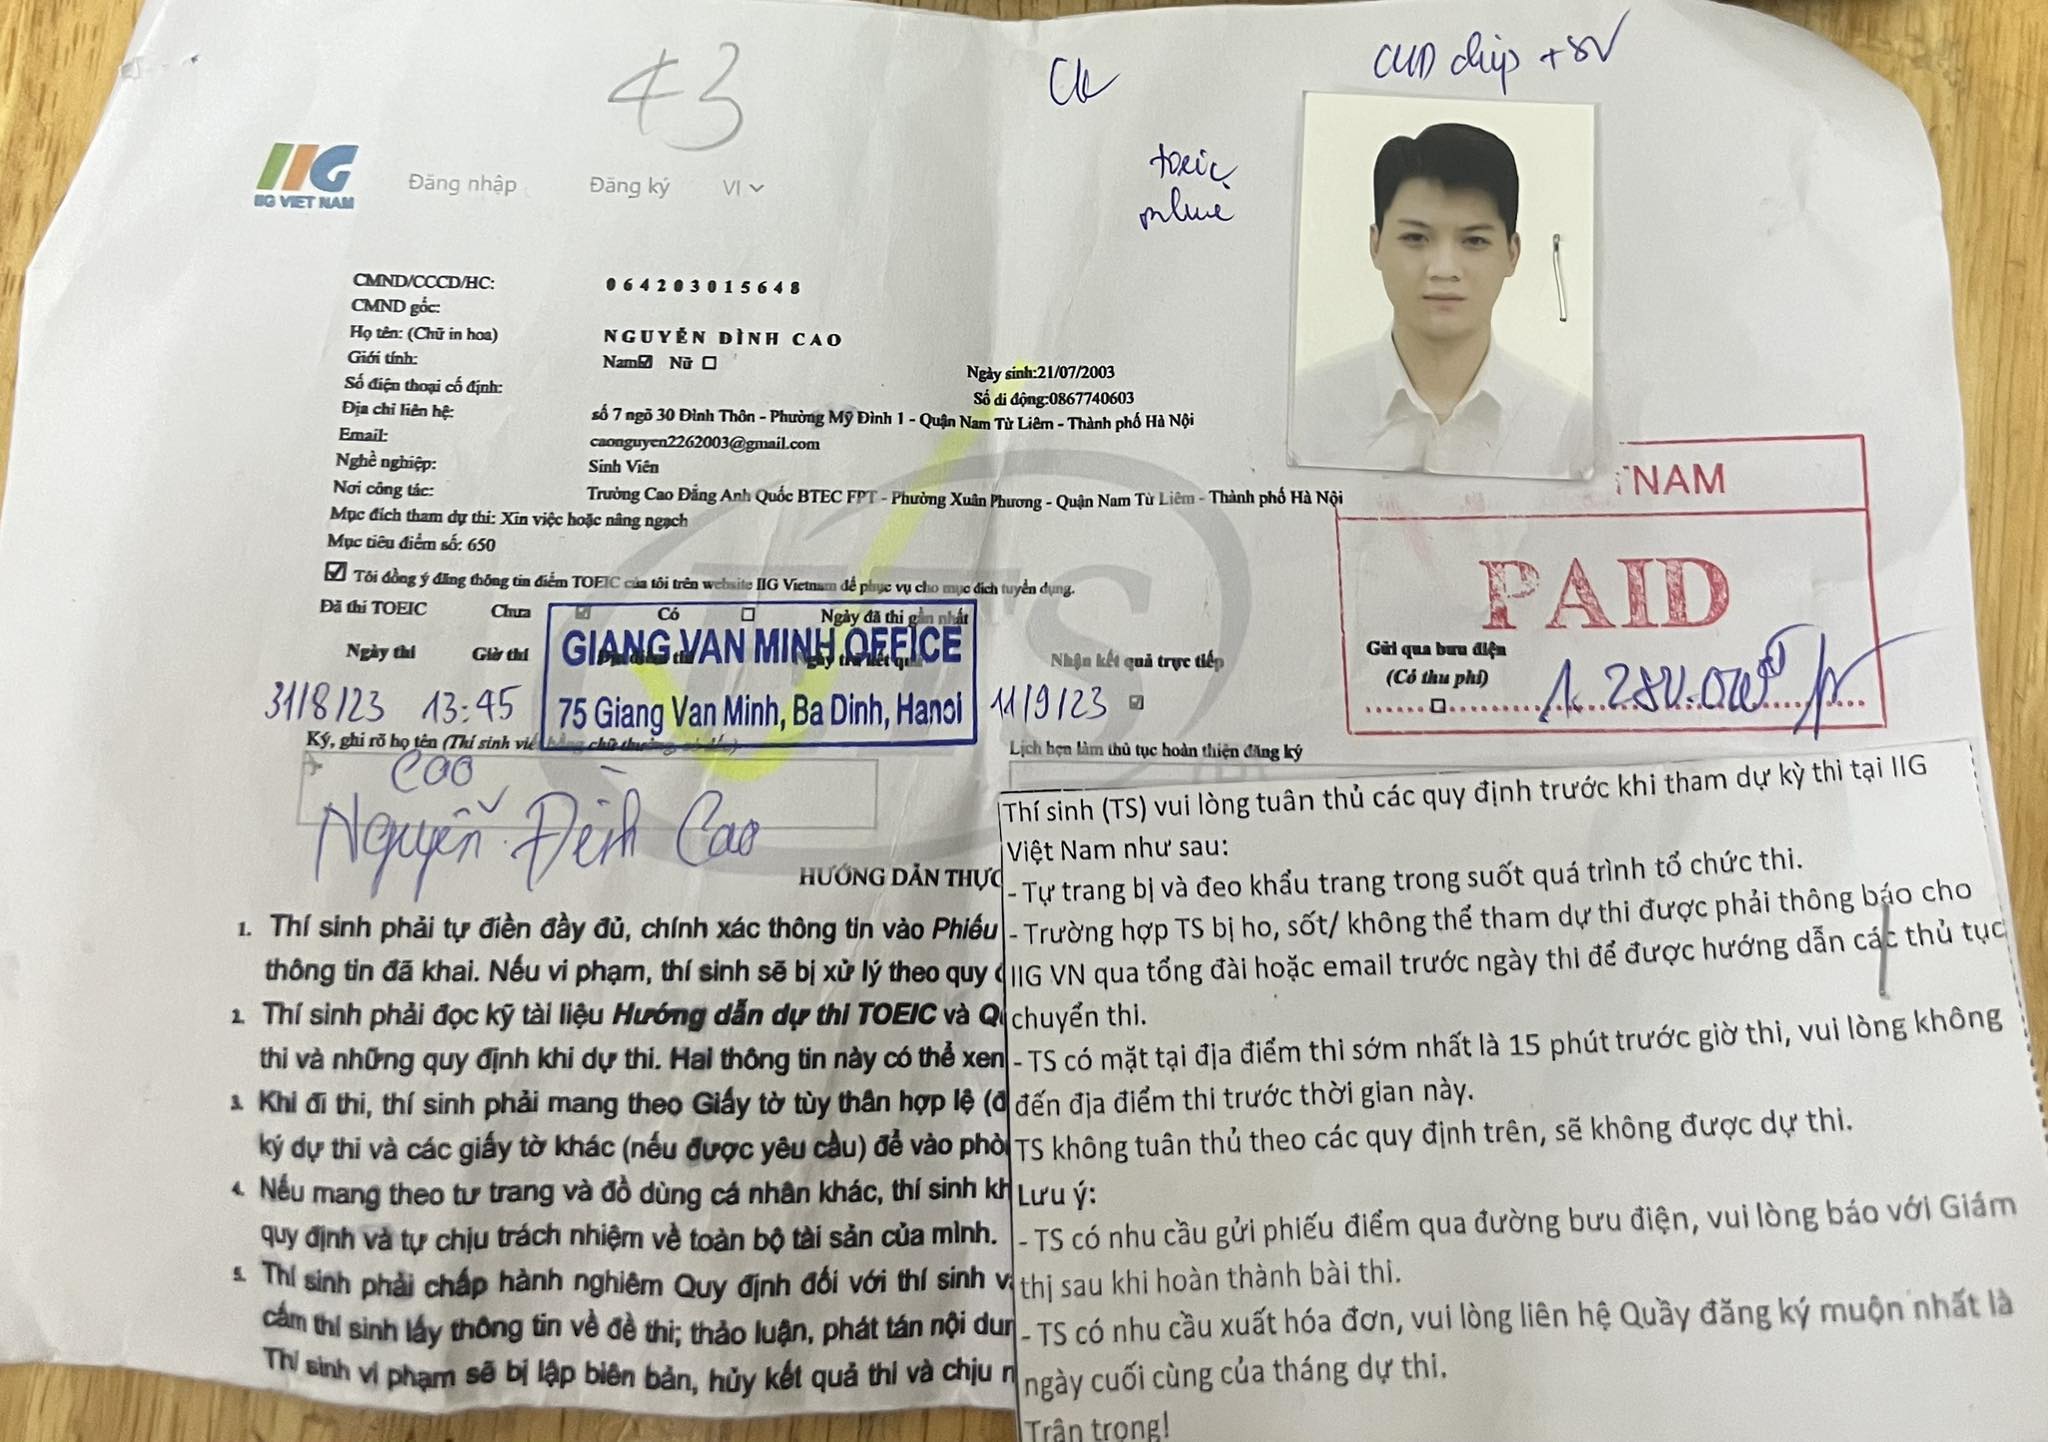 43
CK
CCCD chip + SV
IIG
IIG VIET NAM
Đăng nhập Đăng ký VI
toeic
online
CMND/CCCD/HC: 064203015648
CMND gốc:
Họ tên: (Chữ in hoa) NGUYỄN ĐÌNH CAO
Giới tính: Nam Nữ
Ngày sinh:21/07/2003
Số điện thoại cố định:
Số di động:0867740603
Địa chỉ liên hệ: số 7 ngõ 30 Đình Thôn - Phường Mỹ Đình 1 - Quận Nam Từ Liêm - Thành phố Hà Nội
Email: caonguyen2262003@gmail.com
Nghề nghiệp: Sinh Viên
Nơi công tác: Trường Cao Đẳng Anh Quốc BTEC FPT - Phường Xuân Phương - Quận Nam Từ Liêm - Thành phố Hà Nội
Mục đích tham dự thi: Xin việc hoặc nâng ngạch
Mục tiêu điểm số: 650
Tôi đồng ý đăng thông tin điểm TOEIC của tôi trên website IIG Vietnam để phục vụ cho mục đích tuyển dụng.
TNAM
PAID
Đã thi TOEIC Chưa Có Ngày đã thi gần nhất
Ngày thi Giờ thi Nhận kết quả trực tiếp Gửi qua bưu điện
(Có thu phí)
GIANG VAN MINH OFFICE
75 Giang Van Minh, Ba Dinh, Hanoi
31/8/23 13:45 11/9/23
Ký, ghi rõ họ tên (Thí sinh
Lịch hẹn làm thủ tục hoàn thiện đăng ký
Cao
Nguyễn Đình Cao
HƯỚNG DẪN THỰC
1. Thí sinh phải tự điền đầy đủ, chính xác thông tin vào Phiếu
thông tin đã khai. Nếu vi phạm, thí sinh sẽ bị xử lý theo quy
2. Thí sinh phải đọc kỹ tài liệu Hướng dẫn dự thi TOEIC và
thi và những quy định khi dự thi. Hai thông tin này có thể
3. Khi đi thi, thí sinh phải mang theo Giấy tờ tùy thân hợp lệ
ký dự thi và các giấy tờ khác (nếu được yêu cầu) để vào
4. Nếu mang theo tư trang và đồ dùng cá nhân khác, thí sinh
quy định và tự chịu trách nhiệm về toàn bộ tài sản của mình.
5. Thí sinh phải chấp hành nghiêm Quy định đối với thí sinh
cấm thí sinh lấy thông tin về đề thi; thảo luận, phát tán nội
Thí sinh vi phạm sẽ bị lập biên bản, hủy kết quả thi và chịu
Thí sinh (TS) vui lòng tuân thủ các quy định trước khi tham dự kỳ thi tại IIG
Việt Nam như sau:
- Tự trang bị và đeo khẩu trang trong suốt quá trình tổ chức thi.
- Trường hợp TS bị ho, sốt/ không thể tham dự thi được phải thông báo cho
IIG VN qua tổng đài hoặc email trước ngày thi để được hướng dẫn các thủ tục
chuyển thi.
- TS có mặt tại địa điểm thi sớm nhất là 15 phút trước giờ thi, vui lòng không
đến địa điểm thi trước thời gian này.
TS không tuân thủ theo các quy định trên, sẽ không được dự thi.
Lưu ý:
- TS có nhu cầu gửi phiếu điểm qua đường bưu điện, vui lòng báo với Giám
thị sau khi hoàn thành bài thi.
- TS có nhu cầu xuất hóa đơn, vui lòng liên hệ Quầy đăng ký muộn nhất là
ngày cuối cùng của tháng dự thi.
Trân trọng!